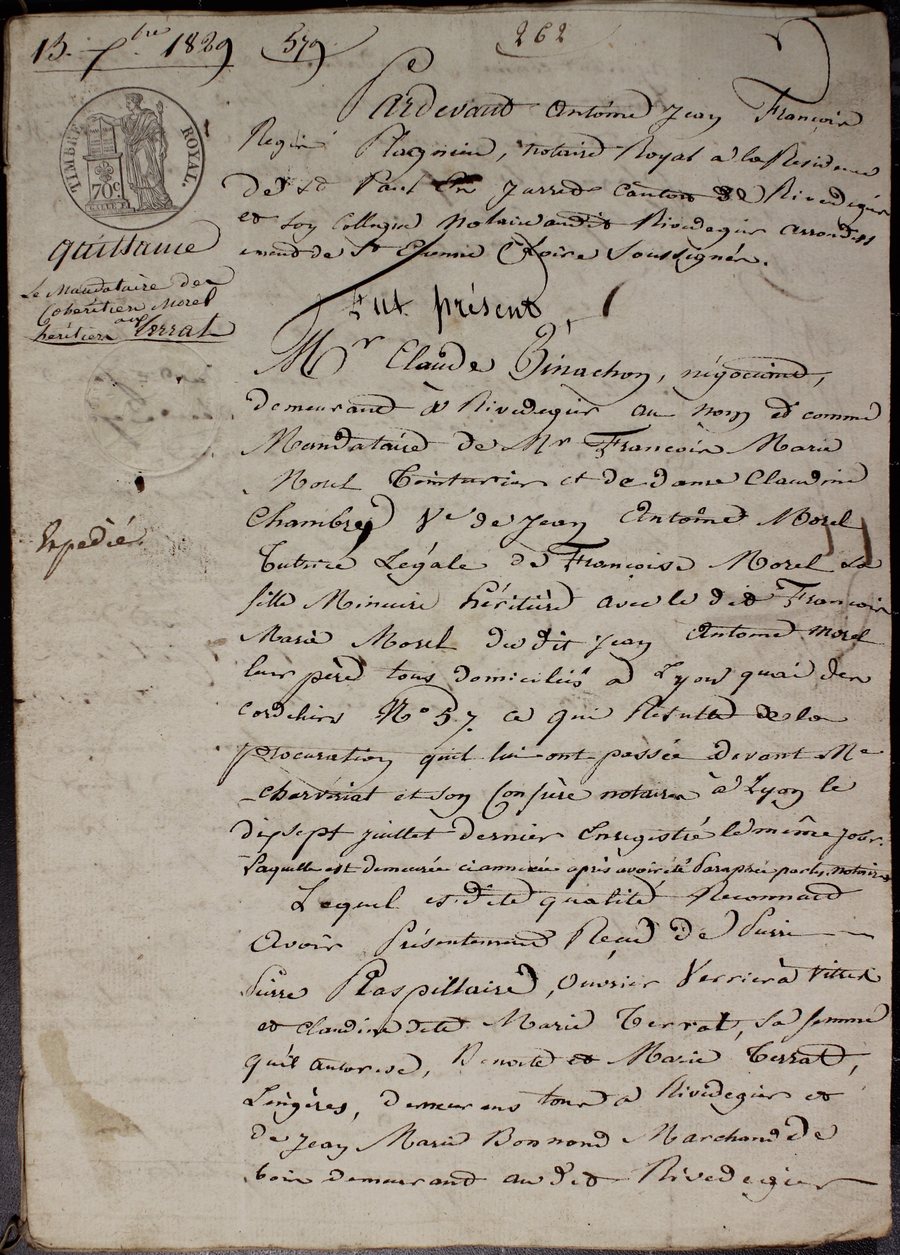 13. 7bre 1829 579 262
TIMBRE ROYAL.
70c
Pardevant Antoine Jean François
Regis notaire Royal a la Residence
de st Paul En Jarrest Canton de Rivedegier
et son Collegue Notaire audit Rivedegier arrondiss
ement de St Etienne Loire Soussignés.
quittance
Le Mandataire des
Cohéritiers Morel
aux
héritiers Terrat
Expédiée
Fut présent
Mr Claude Pinachon, négociant,
demeurant à Rivedegier au nom et comme
Mandataire de Mr François Marie
Morel Teinturier et de dame Claudine
Chambre Ve de Jean Antoine Morel
Tutrice Légale de Françoise Morel sa
fille Mineure héritière avec le dit François
Marie Morel du dit Jean Antoine Morel
leur père tous domiciliés a Lyon quai des
cordeliers No 57 ce qui Résulte de la
procuration quil lui ont passée devant Me
Charvériat et son Confrère notaires à Lyon le
dipsept juillet dernier Enregistré le même jour.
Laquelle est demeurée ci annexée après avoir été Paraphée par les notaires
Lequel esdite qualité Reconnait
Avoir Présentement Reçu de Pierre
Pierre Raspillaire, ouvrier Verrier à Vitres
et Claudine dite Marie Terrat, sa femme
qu'il autorise, Benoite et Marie Terrat,
Lingères, demeurans tous a Rivedegier et
de Jean Marie Bonnond Marchand de
bois demeurant au dit Rivedegier